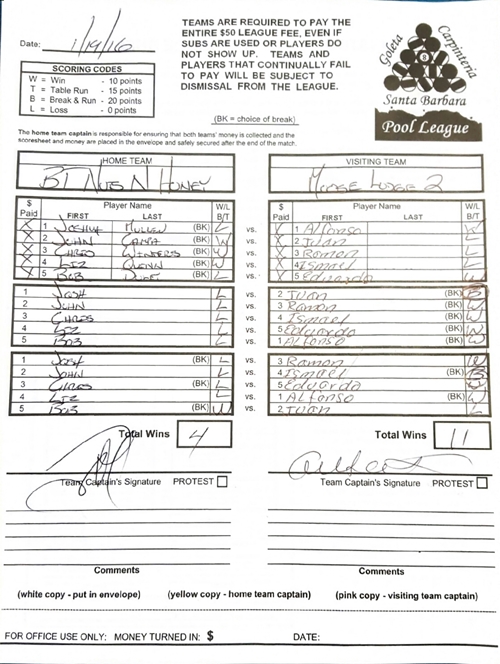 Date: 1/19/16
TEAMS ARE REQUIRED TO PAY THE
ENTIRE $50 LEAGUE FEE, EVEN IF
SUBS ARE USED OR PLAYERS DO
NOT SHOW UP. TEAMS AND
PLAYERS THAT CONTINUALLY FAIL
TO PAY WILL BE SUBJECT TO
DISMISSAL FROM THE LEAGUE.
Goleta Carpinteria
Santa Barbara
Pool League
SCORING CODES
W = Win - 10 points
T = Table Run - 15 points
B = Break & Run - 20 points
L = Loss - 0 points
(BK = choice of break)
The home team captain is responsible for ensuring that both teams' money is collected and the
scoresheet and money are placed in the envelope and safely secured after the end of the match.
HOME TEAM VISITING TEAM
BJ Nuts N Honey Moose Lodge 2
$ Paid Player Name FIRST LAST W/L B/T $ Paid Player Name FIRST LAST W/L B/T
X 1 Joshua Mullen (BK) L vs. X 1 Alfonso W
X 2 John Cama (BK) W vs. X 2 Ivan L
X 3 Chris (BK) W vs. X 3 Ramon L
X 4 Liz Glenn (BK) W vs. X 4 Ismael L
X 5 Bob (BK) L vs. X 5 Eduardo W
1 Josh L vs. 2 Ivan (BK) B
2 John L vs. 3 Ramon (BK) W
3 Chris L vs. 4 Ismael (BK) W
4 Liz L vs. 5 Eduardo (BK) W
5 Bob L vs. 1 Alfonso (BK) W
1 Josh (BK) L vs. 3 Ramon W
2 John L vs. 4 Ismael (BK) B
3 Chris (BK) L vs. 5 Eduardo W
4 Liz L vs. 1 Alfonso (BK) W
5 Bob (BK) W vs. 2 Ivan L
Total Wins 4 Total Wins 11
Team Captain's Signature PROTEST Team Captain's Signature PROTEST
Comments Comments
(white copy - put in envelope) (yellow copy - home team captain) (pink copy - visiting team captain)
FOR OFFICE USE ONLY: MONEY TURNED IN: $ DATE: